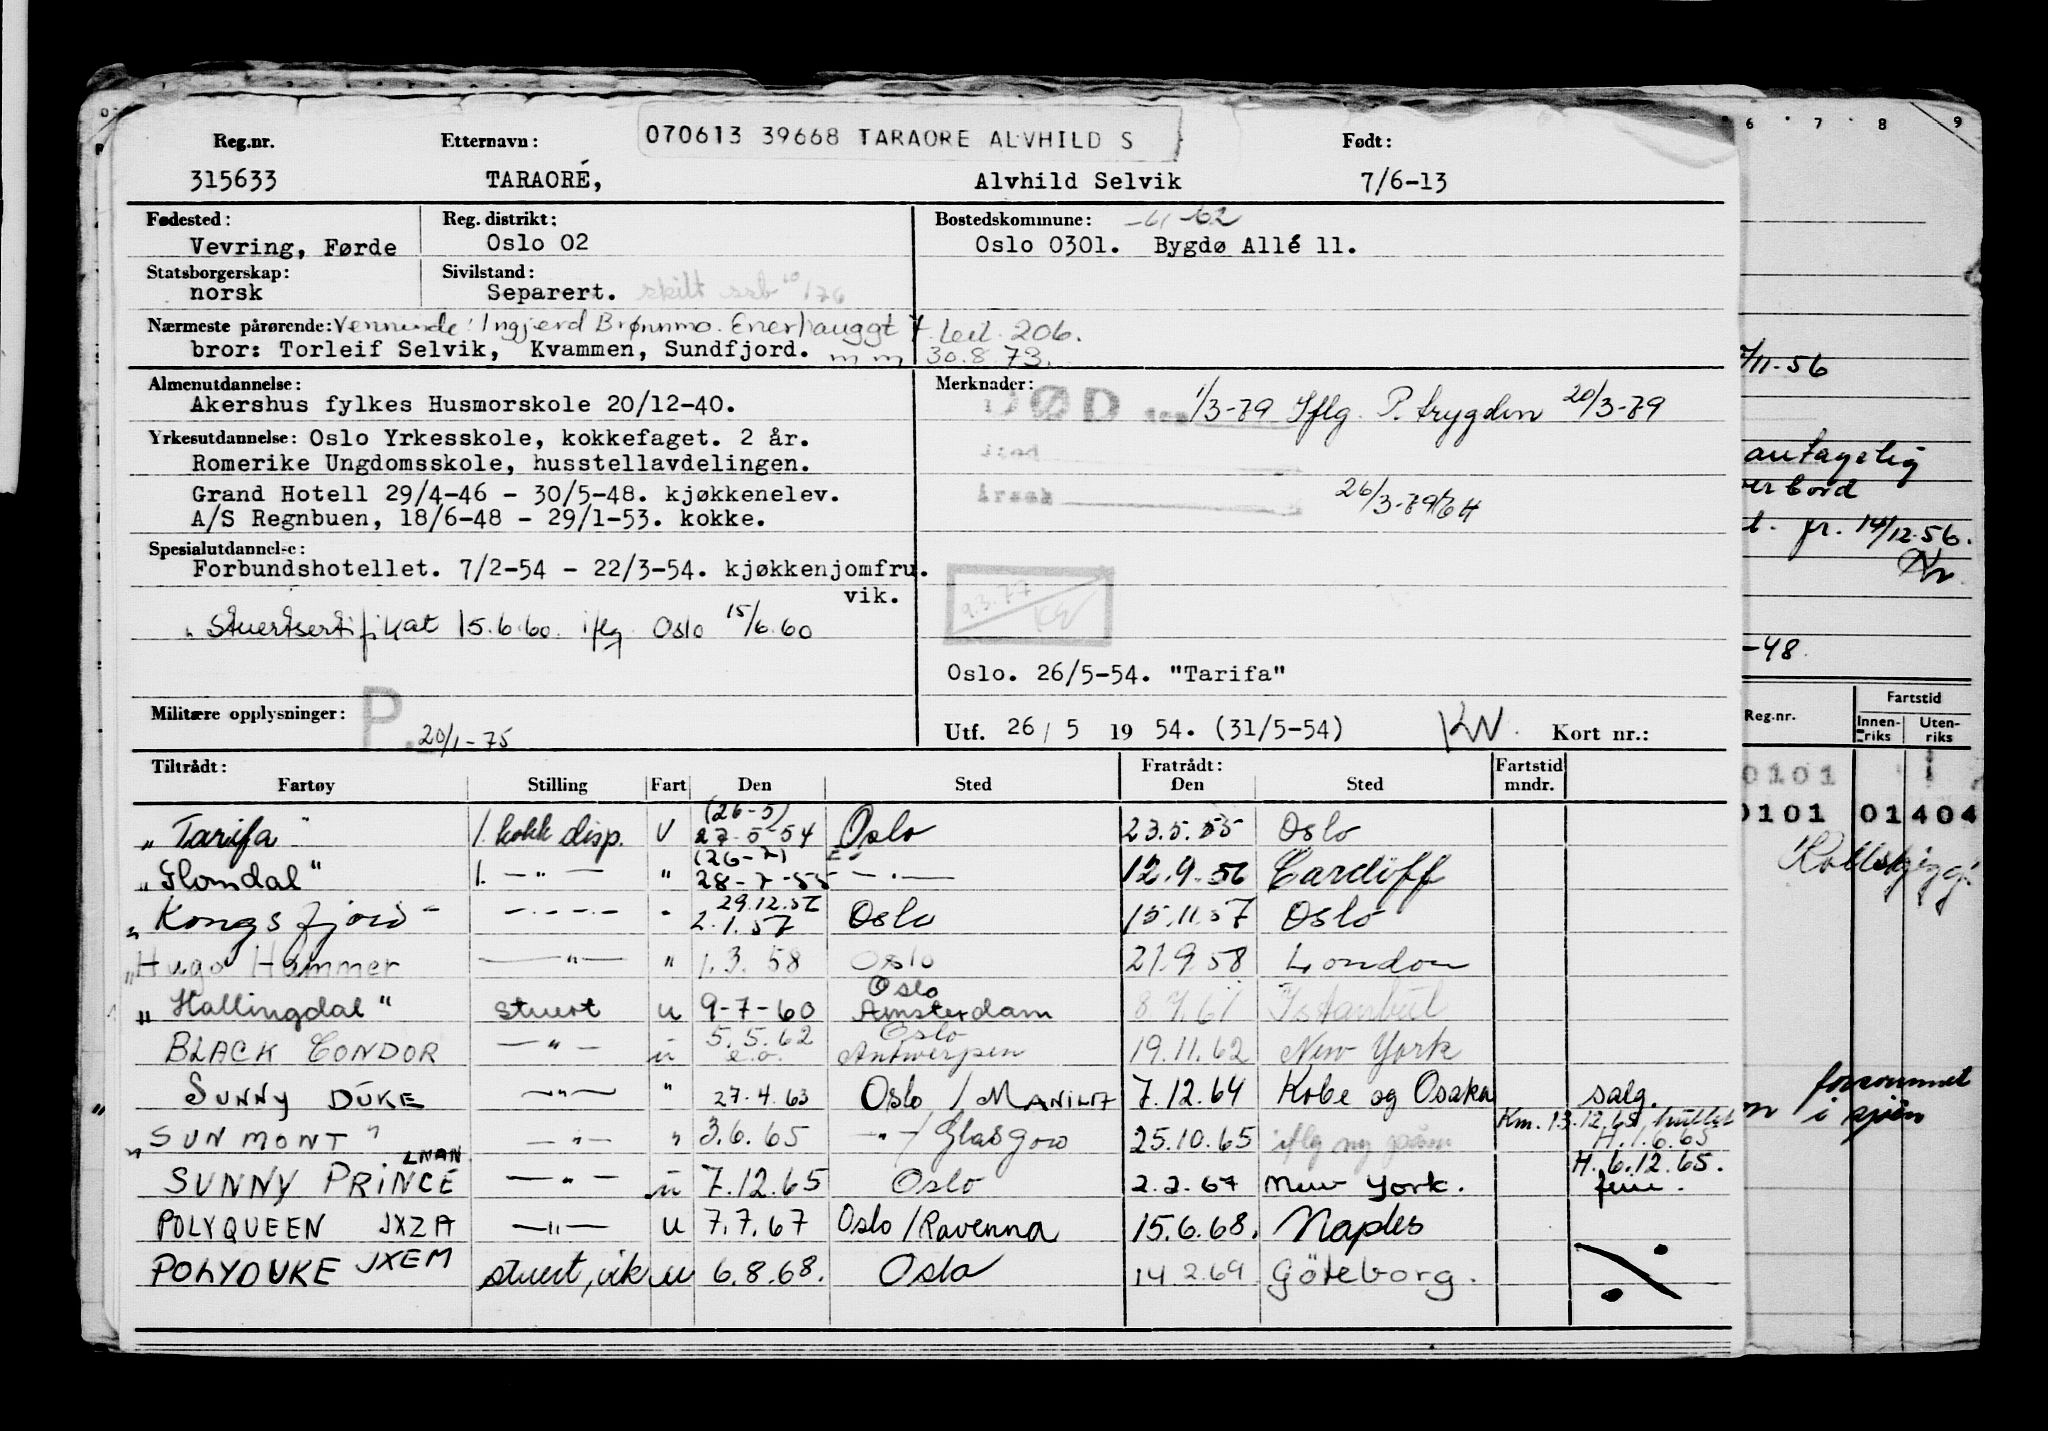 070613 39668 TARAORE ALVHILD S
Reg.nr. Etternavn: Født:
315633 TARAORÉ, Alvhild Selvik 7/6-13
Fødested: Reg. distrikt: Bostedskommune: -61-62
Vevring, Førde Oslo 02 Oslo 0301. Bygdø Allé 11.
Statsborgerskap: Sivilstand:
norsk Separert. skilt ssb
Nærmeste pårørende: Venninde: Ingjerd Brønnmo. Enerhauggt 7 leil. 206.
bror: Torleif Selvik, Kvammen, Sundfjord. m m 30.8.73.
Almenutdannelse: Merknader:
Akershus fylkes Husmorskole 20/12-40. DØD den 1/3-79 Iflg. P. trygden 20/3-79
Yrkesutdannelse: Oslo Yrkesskole, kokkefaget. 2 år.
Romerike Ungdomsskole, husstellavdelingen.
Grand Hotell 29/4-46 - 30/5-48. kjøkkenelev. årsak 26/3-79
A/S Regnbuen, 18/6-48 - 29/1-53. kokke.
Spesialutdannelse:
Forbundshotellet. 7/2-54 - 22/3-54. kjøkkenjomfru.
vik.
9.3.77
Stuertsertifikat 15.6.60. iflg Oslo 15/6.60
Oslo. 26/5-54. "Tarifa"
Militære opplysninger: P. 20/1-75
Utf. 26/5 19 54. (31/5-54) KN. Kort nr.:
Tiltrådt: Fratrådt: Fartstid
Fartøy Stilling Fart Den Sted Den Sted mndr.
(26-5)
"Tarifa" 1. kokk disp. U 27-5-54 Oslo 23.5.55 Oslo
(26-7)
"Flomdal" 1. -"- " 28-7-55 -"- 12.9.56 Cardiff
29.12.56
"Kongsfjord" -"- " 2.1.57 Oslo 15.11.57 Oslo
"Hugo Hammer -"- " 1.3.58 Oslo 21.9.58 London
Oslo
"Hallingdal" stuert u 9-7-60 Amsterdam 8.7.61 Istanbul
5.5.62 Oslo
BLACK CONDOR -"- u e.o. Antwerpen 19.11.62 New York
SUNNY DUKE -"- " 27.4.63 Oslo / MANILA 7.12.64 Kobe og Osaka salg.
Km. 13.12.65,
"SUNMONT" -"- " 3.6.65 -"- / Glasgow 25.10.65 iflg ny påm H. 1.6.65
LNAN H. 6.12.65.
SUNNY PRINCE -"- u 7.12.65 Oslo 2.2.67 New York. ferie.
POLYQUEEN JXZA -"- u 7.7.67 Oslo / Ravenna 15.6.68. Naples
POLYDUKE JXEM stuert, vik u 6.8.68. Oslo 14.2.69 Göteborg.
6 7 8 9
7/11-56
antagelig
14/12-56.
-48
Fartstid
Reg.nr. Innen-riks Uten-riks
0101
0101 01 404
forsvunnet
i sjøen